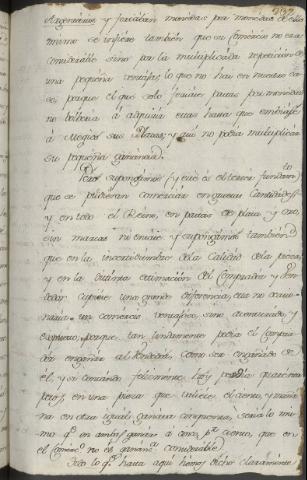 232
Argentános y sacában monedas por monedas de oro
mismo se infiere también que su comercio no era
considerable sino por la multiplicada repetición de
una pequeña ventaja, lo que no hai en nuestro ca-
so porque el que solo sacáse pastas por monedas
no bolveria á adquirir esas hasta que embiase
á Megico sus Platas; y aqui no podia multiplicar
su pequeña ganancia.
Pero supongámos (y este es el tercer fundamto
que se pudieran comerciar en gruesas Cantidades
y en todo el Reino, en pastas de plata, y oro
sin marcas ni ensaie y supongámos también
que en la incertidumbre de la calidad de la pieza,
y en la distinta estimación del Comprador y Ven-
dedor cupiese una grande diferencia, esta no ocasio-
naria un comercio ventajoso, sino aventurado, y
expuesto, porque tan lindamente podia el Compra-
dor engañar al Vendedor, como ser engañado de
él, y si contando felizmente hoy perdía quarenta
pesos, en una pieza que tubiese el ciento, y maña-
na en otra igual ganára cinquenta, seria lo mis-
mo qe en ambas ganár á cinco pr ciento, que en
el Comercio no es gananca considerable.
Todo lo qe hasta aqui hémos dicho claramente